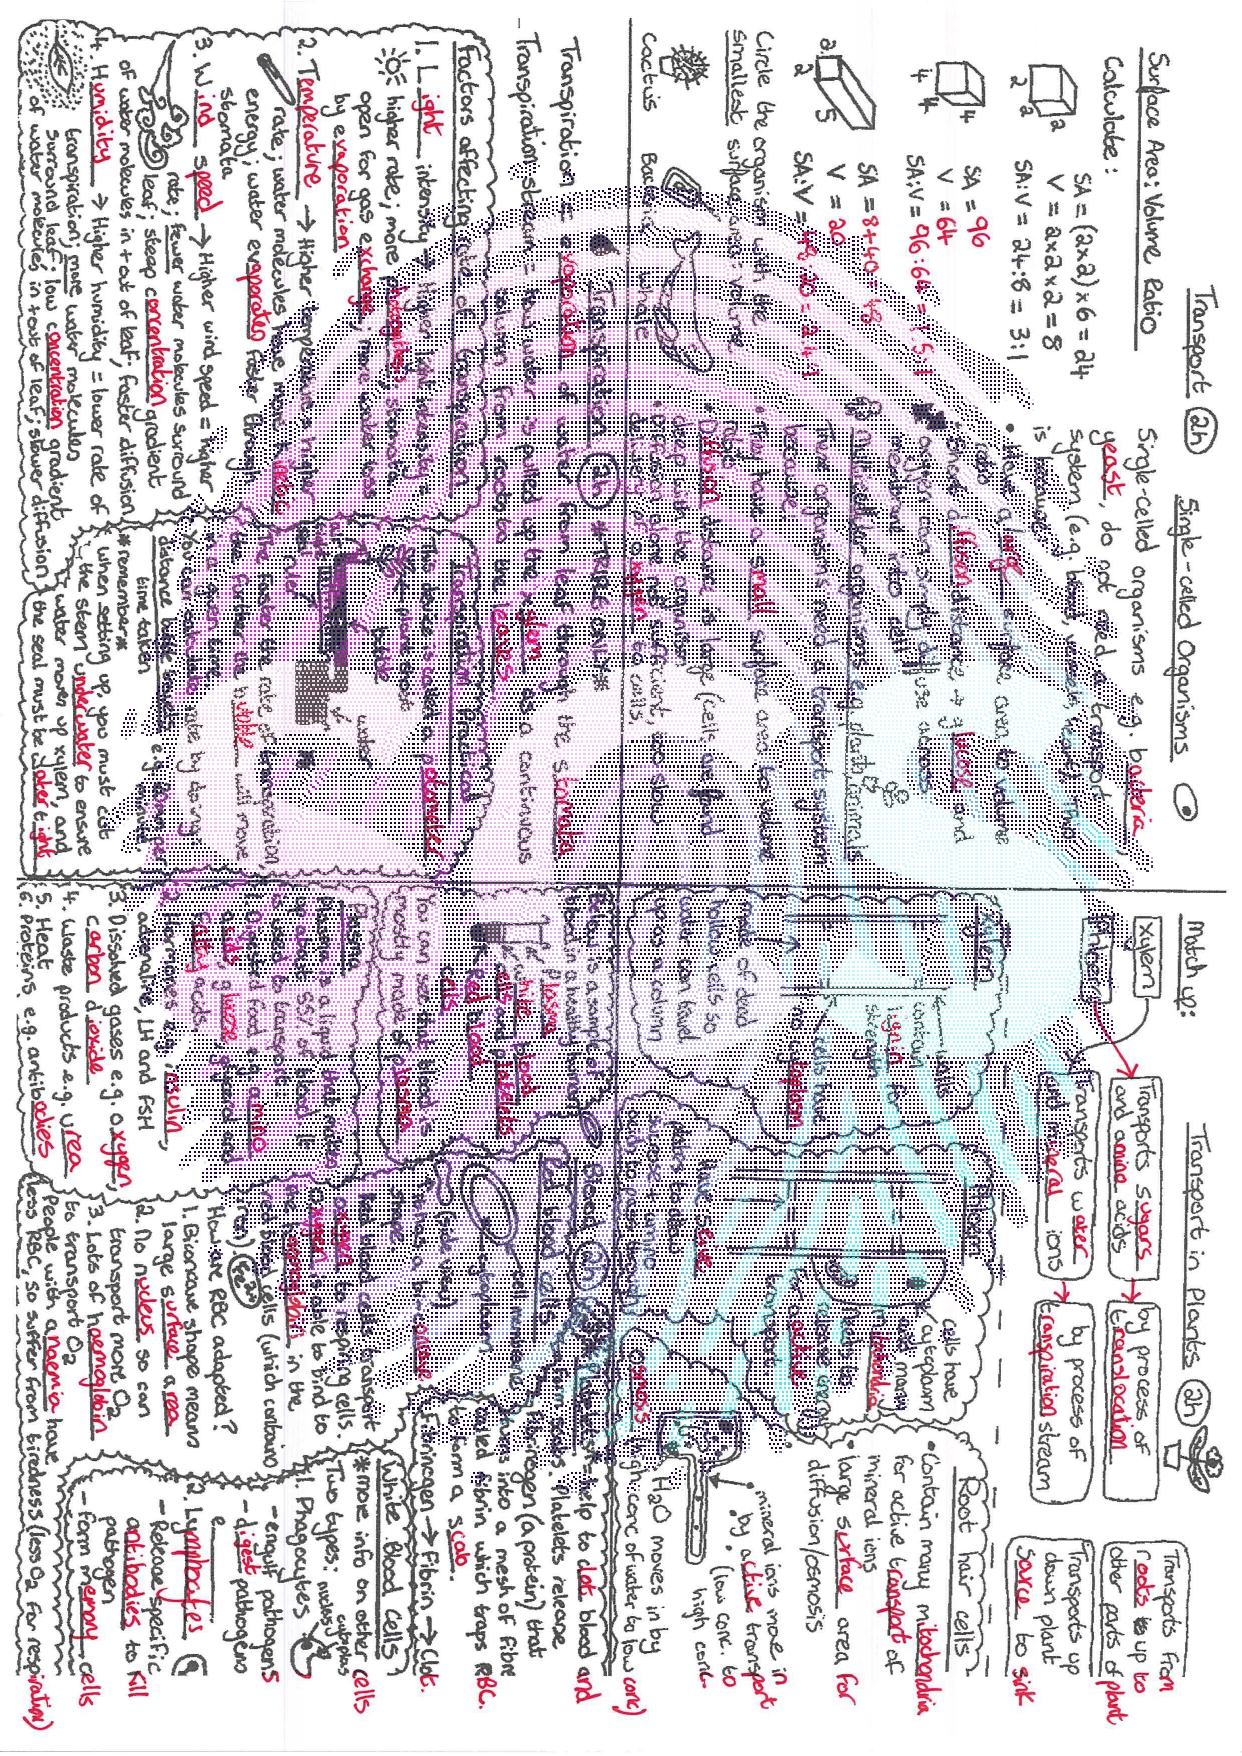 Transport 2h
Surface Area: Volume Ratio
Calculate:
SA = (2x2) x 6 = 24
V = 2x2x2 = 8
SA:V = 24:8 = 3:1
2
2
2
SA = 96
V = 64
SA:V = 96:64 = 1.5:1
4
4
4
SA = 8+40 = 48
V = 20
SA:V = 48:20 = 2.4:1
2
2
5
Circle the organism with the
smallest surface area: volume
Cactus
Bacteria
whale
Single-celled Organisms
Single-celled organisms e.g. bacteria
yeast, do not need a transport
system (e.g. blood, vessels, heart). This
is because:
• Have a large surface area to volume
ratio
• Short diffusion distance → glucose and
oxygen can simply diffuse across
membrane into cell
Multicellular organisms e.g. plants, animals
These organisms need a transport system
because
• They have a small surface area to volume
ratio
• Diffusion distance is large (cells are found
deep with the organism
• Diffusion alone not sufficient, too slow
delivery of oxygen to cells.
Transport in Plants 2h
Match up:
Xylem
Phloem
Transports sugars
and amino acids
Transports water
and mineral ions
by process of
translocation
by process of
transpiration stream
Transports from
roots up to
other parts of plant
Transports up
down plant
source to sink
Xylem
walls
contain
lignin for
strength
cells have
no cytoplasm
made of dead
hollow cells so
water can travel
up as a column
Phloem
cells have
cytoplasm
and many
mitochondria
release energy
for active
transport
have sieve
plates to allow
sucrose + amino
acid to pass through
Root hair cells
• Contain many mitochondria
for active transport of
mineral ions
• large surface area for
diffusion/osmosis
• mineral ions move in
by active transport
(low conc. to
high conc.
H2O moves in by
osmosis (high conc of water to low conc)
Transpiration 2h *TRIPLE ONLY*
Transpiration = evaporation of water from leaf through the stomata
Transpiration stream = how water is pulled up the xylem as a continuous
column from roots to the leaves
Factors affecting rate of transpiration
1. Light intensity → Higher light intensity =
higher rate; more photosynthesis; stomata
open for gas exchange; more water loss
by evaporation
2. Temperature → Higher temperature = higher
rate; water molecules have more kinetic
energy; water evaporates faster through
stomata
3. Wind speed → Higher wind speed = higher
rate; fewer water molecules surround
leaf; steep concentration gradient
of water molecules in + out of leaf; faster diffusion
4. Humidity → Higher humidity = lower rate of
transpiration; more water molecules
surround leaf; low concentration gradient
of water molecules in + out of leaf; slower diffusion
Transpiration Practical
The device is called a potometer
plant shoot
bubble
water
ruler
The faster the rate of transpiration,
the further the bubble will move
in a given time
You can calculate rate by doing:
distance bubble travels
time taken
*remember*
* when setting up, you must cut
the stem underwater to ensure
water moves up xylem, and
the seal must be water tight
Blood 2h
Below is a sample of
blood in a healthy human
plasma
white blood
cells and platelets
Red blood
cells
You can see that blood is
mostly made of plasma
Plasma
Plasma is a liquid that makes
up about 55% of blood. It
is used to transport:
1. Digested food e.g. amino
acids, glucose, glycerol and
fatty acids
2. Hormones e.g. insulin,
adrenaline, LH and FSH
3. Dissolved gases e.g. oxygen,
carbon dioxide
4. Waste products e.g. urea
5. Heat
6. Proteins e.g. antibodies
Red blood cells
cell membrane
cytoplasm
(side view)
• has a bi-concave
shape
Red blood cells transport
oxygen to respiring cells.
Oxygen is able to bind to
the haemoglobin in the
red blood cells (which contains
iron) Fe2+
How are RBC adapted?
1. Biconcave shape means
large surface area
2. No nucleus so can
transport more O2
3. Lots of haemoglobin
to transport O2
People with anaemia have
less RBC, so suffer from tiredness (less O2 for respiration)
Platelets help to clot blood and
form scabs. Platelets release
fibrinogen (a protein) that
turns into a mesh of fibre
called fibrin which traps RBC.
to form a scab.
Fibrinogen → Fibrin → Clot.
White Blood Cells
*more info on other cells
Two types:
1. Phagocytes
- engulf pathogens
- digest pathogens
2. Lymphocytes
- Release specific
antibodies to kill
pathogen
- form memory cells